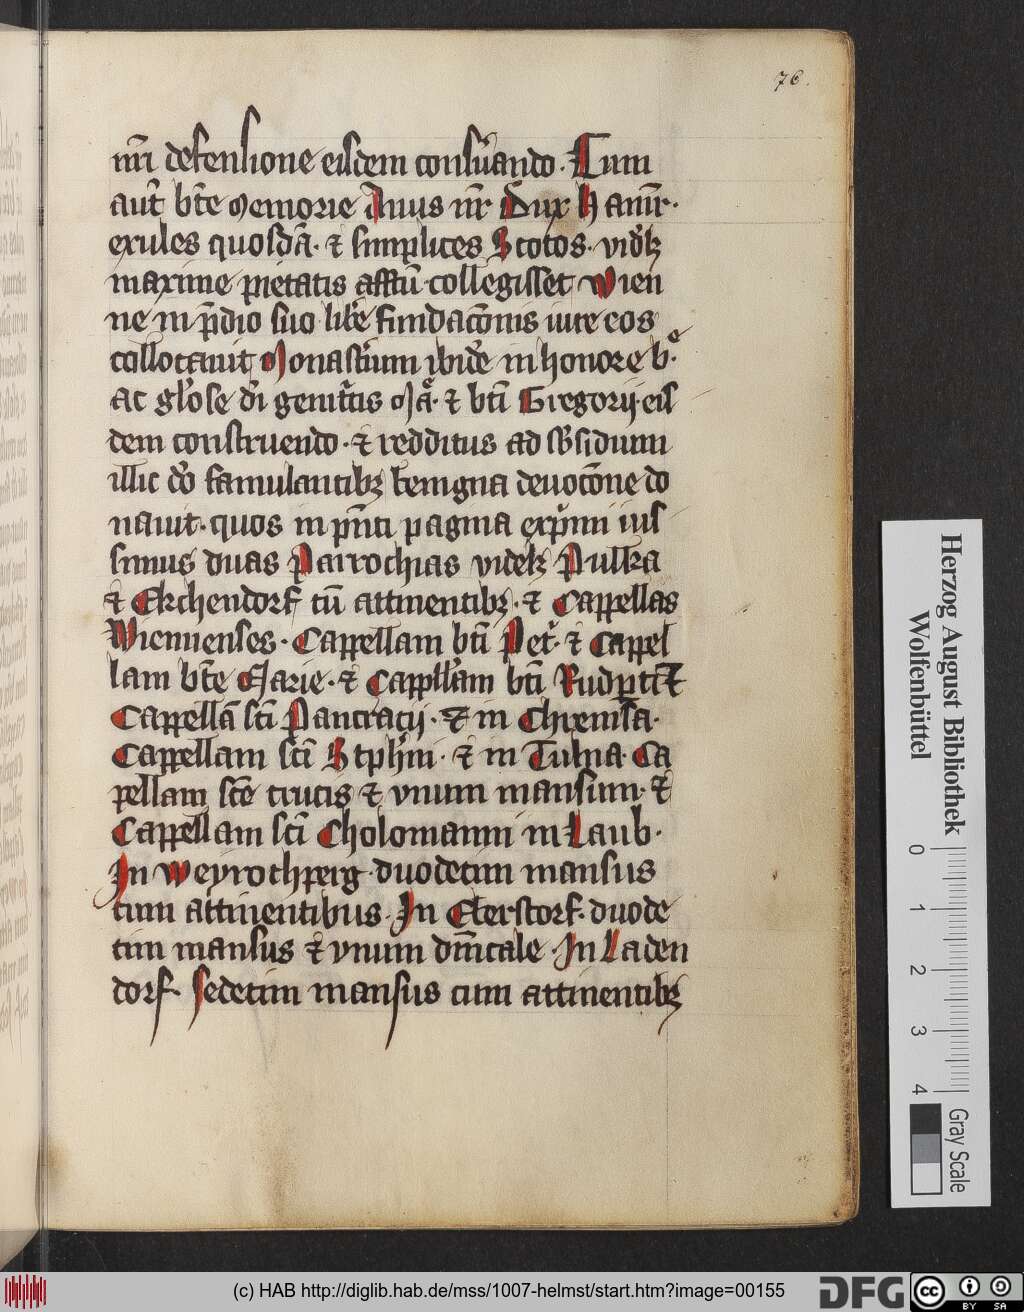 76.
nr̄i defensione eisdem conẜuando. Cum
aut̄ bt̄e Memorie dn̄us nr̄ Dux Hainr̄.
exules quosdā. ⁊ simplices Scotos. vidꝫ
maxime pietatis afftū collegisset Wien
ne in p̄dio suo libe fundacōnis iure eos
collocauit Monasťium ibidē in honore b.ͤ
ac glōse di genitͬcis Mͣ. ⁊ bt̄i Gregorij. eis
dem construendo. ⁊ redditus ad sb̄sidium
illic do famulantibꝫ benigna deuocōne do
nauit. quos in pn̄ti pagina exp̄mi ius
simus duas Parrochias videlꝫ Pulka
⁊ Ekchendorf cū attinentibꝫ. ⁊ Cappellas
Wiennenses. Cappellam bt̄i Pet̄. ⁊ Cappel
lam bt̄e Marie. ⁊ Cappll̄am bt̄i Rudꝑti ⁊
Cappellā sc̄i Pancracij. ⁊ in Chremsa.
Cappellam sc̄i Stph̄ni. ⁊ in Tulna. Ca
pellam sc̄e crucis ⁊ vnum mansum. ⁊
Cappellam sc̄i Cholomanni in Laub.
In Weyrochperg duodecim mansus
cum attinentibus. In Ekerstorf. duode
cim mansus ⁊ vnum dn̄icale. In Laden
dorf. sedecim mansus cum attinentibꝫ
Herzog August Bibliothek
Wolfenbüttel
0 1 2 3 4
Gray Scale
(c) HAB http://diglib.hab.de/mss/1007-helmst/start.htm?image=00155
DFG
cc BY SA